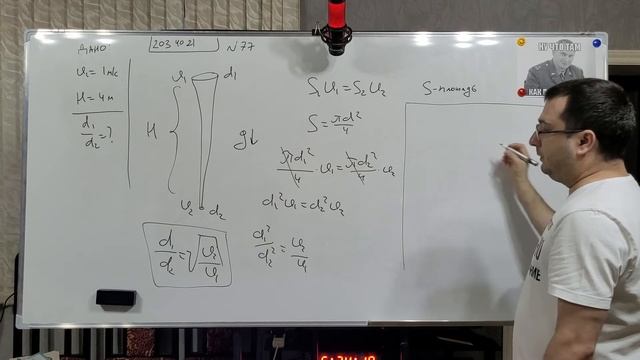 Дано
2034021
N77
υ₁ = 1 м/с
H = 4 м
d₁/d₂ = ?
υ₁ d₁
H
g↓
υ₂ d₂
d₁/d₂ = √(υ₂/υ₁)
S₁υ₁ = S₂υ₂
S = πd²/4
πd₁²/4 · υ₁ = πd₂²/4 · υ₂
d₁²υ₁ = d₂²υ₂
d₁²/d₂² = υ₂/υ₁
S-площадь
НУ ЧТО ТАМ
КАК